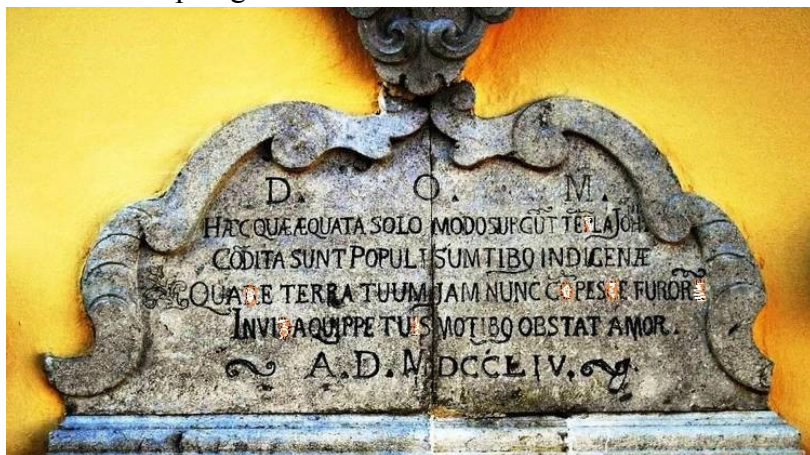 D. O. M.
HÆC QUÆ ÆQUATA SOLO MODO SURGŪT TĒPLA JOH.
CŌDITA SUNT POPULI SUMTIBQ INDIGENÆ
QUARE TERRA TUUM JAM NUNC CŌPESCE FURORĒ
INVIDA QUIPPE TUIS MOTIBQ OBSTAT AMOR.
A.D. MDCCLIV.